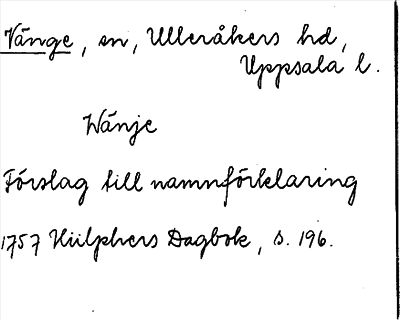 Vänge, sn, Ulleråkers hd,
Uppsala l.
Wänje
Förslag till namnförklaring
1757 Hülphers Dagbok, s. 196.